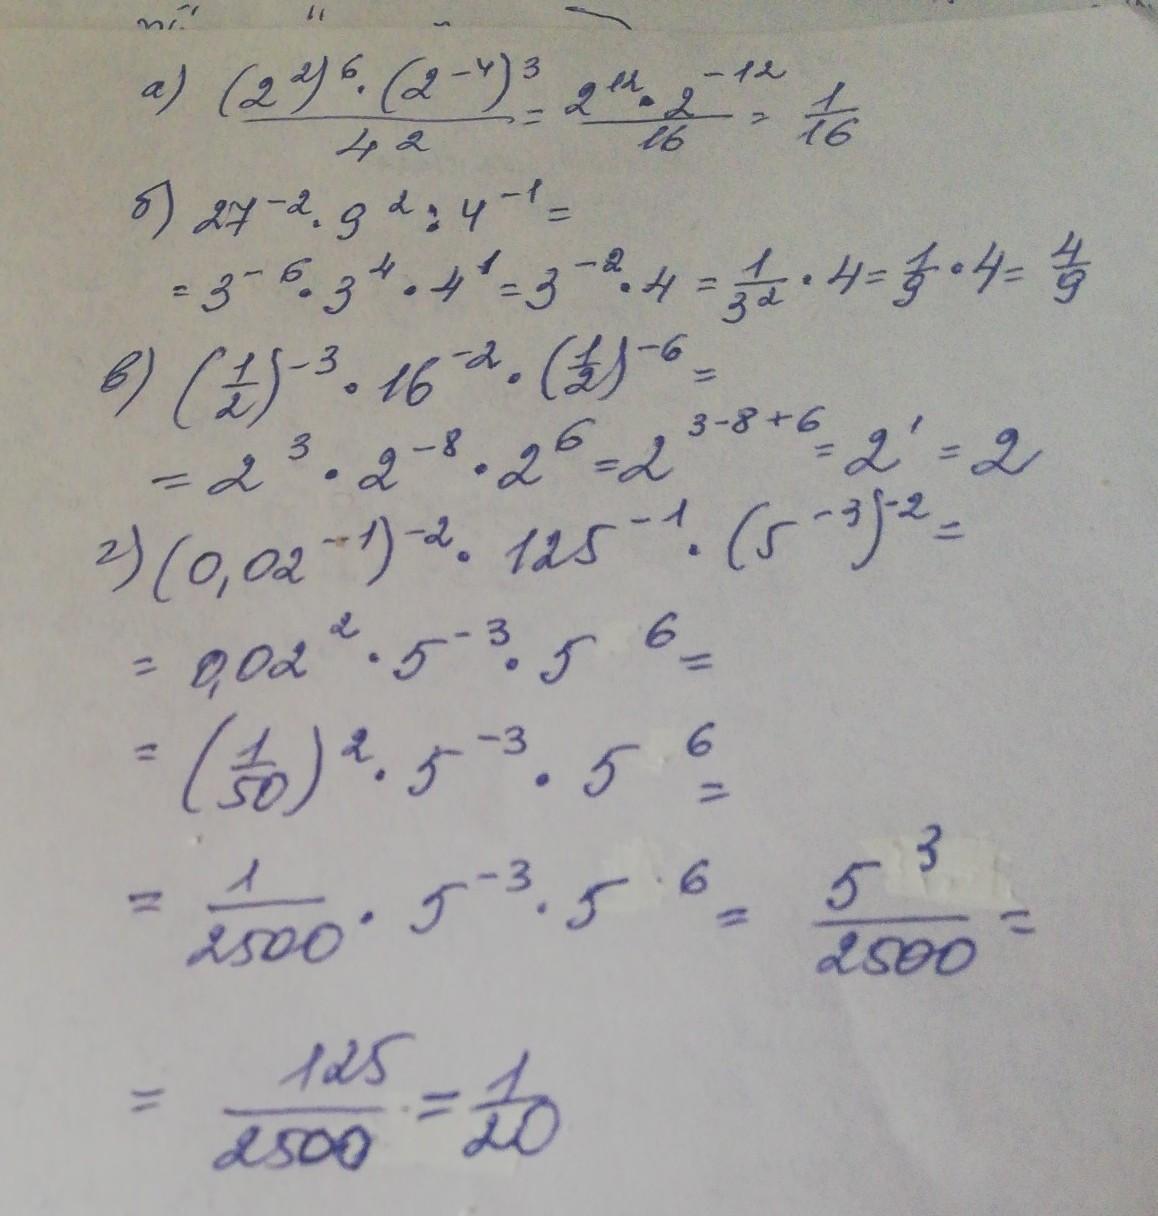 а) (2²)⁶·(2⁻⁴)³/4² = 2¹²·2⁻¹²/16 = 1/16
б) 27⁻²·9²:4⁻¹=
=3⁻⁶·3⁴·4¹=3⁻²·4=1/3²·4=1/9·4=4/9
в) (1/2)⁻³·16⁻²·(1/2)⁻⁶=
=2³·2⁻⁸·2⁶=2³⁻⁸⁺⁶=2¹=2
г) (0,02⁻¹)⁻²·125⁻¹·(5⁻³)⁻²=
=0,02²·5⁻³·5⁶=
=(1/50)²·5⁻³·5⁶=
=1/2500·5⁻³·5⁶=5³/2500=
=125/2500=1/20